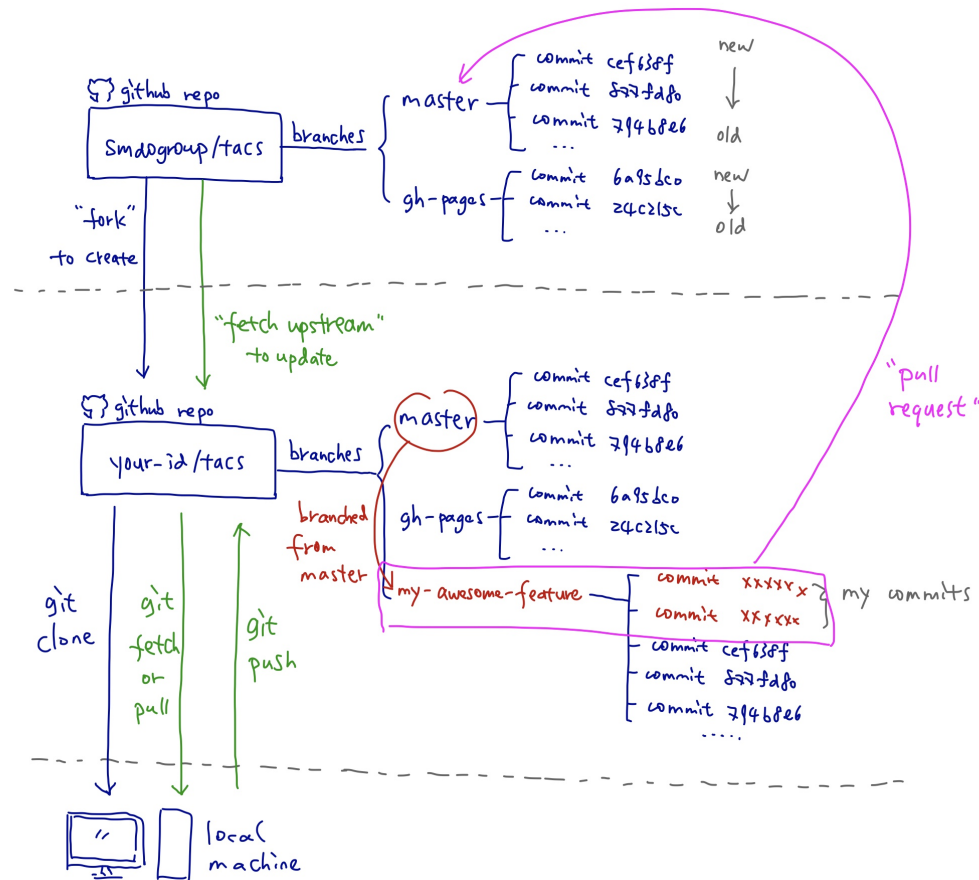 github repo
smdogroup/tacs
branches
master
commit cef638f
commit 877fd80
commit 794b8e6
...
new
old
gh-pages
commit 6a95bc0
commit 24c215c
...
new
old
"fork"
to create
"fetch upstream"
to update
"pull
request"
github repo
your-id/tacs
branches
master
commit cef638f
commit 877fd80
commit 794b8e6
...
gh-pages
commit 6a95bc0
commit 24c215c
...
branched
from
master
my-awesome-feature
commit xxxxxx
commit xxxxxx
my commits
commit cef638f
commit 877fd80
commit 794b8e6
.....
git
clone
git
fetch
or
pull
git
push
local
machine